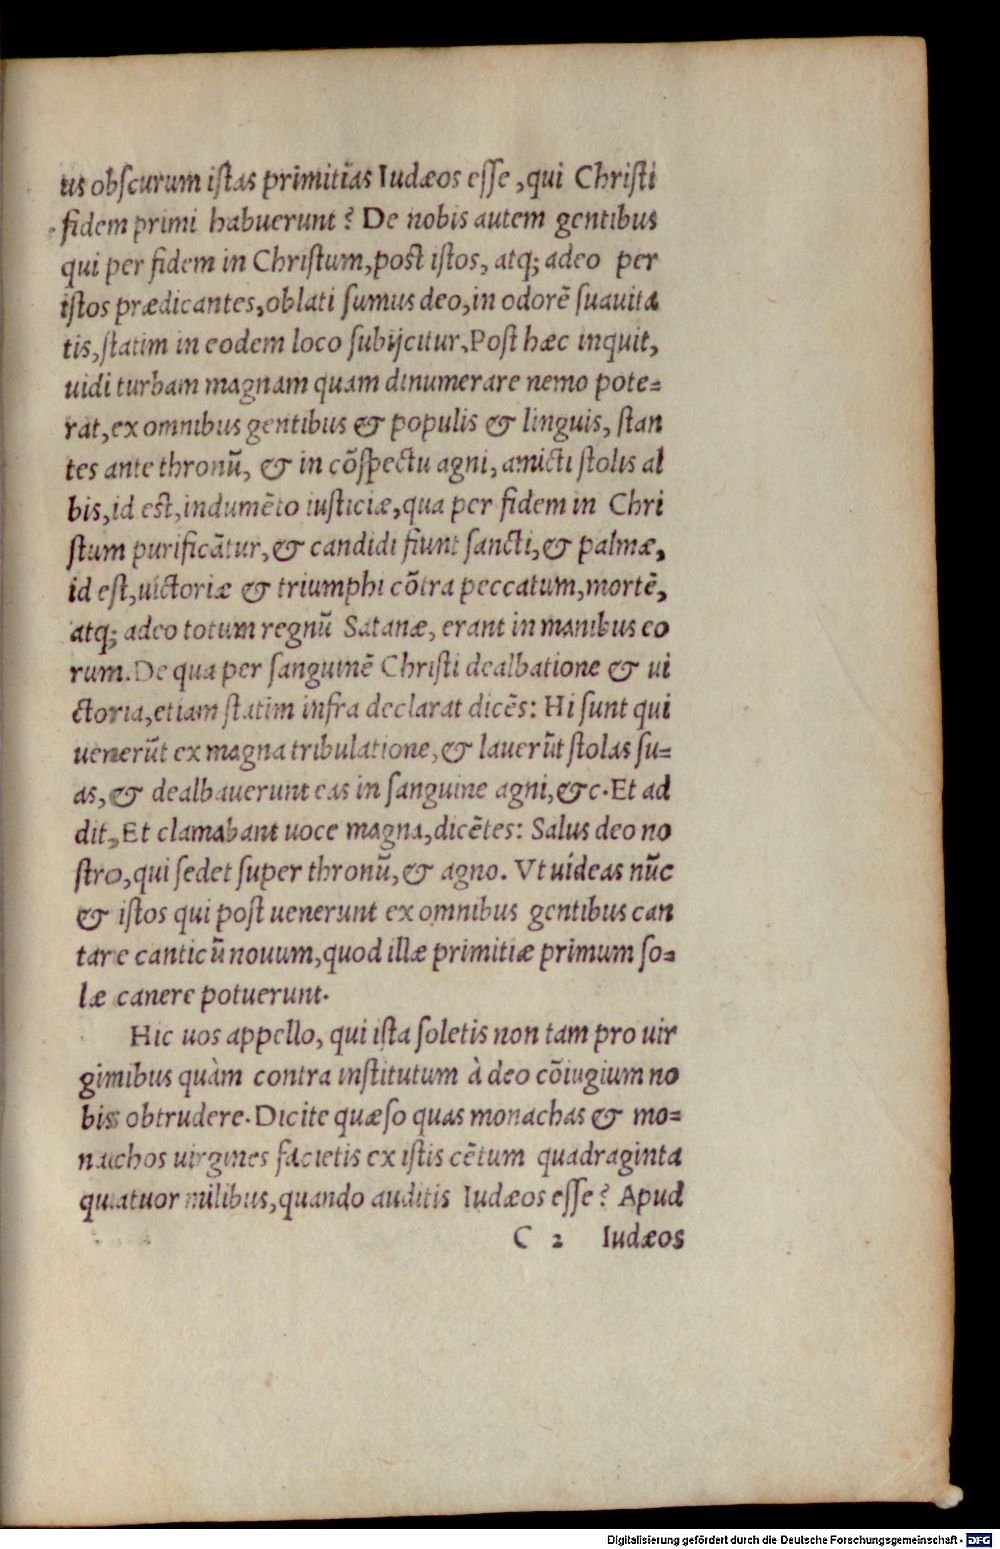 us obscurum istas primitias Iudæos esse, qui Christi
fidem primi habuerunt? De nobis autem gentibus
qui per fidem in Christum, post istos, atq; adeo per
istos prædicantes, oblati sumus deo, in odorē suauita
tis, statim in eodem loco subijcitur. Post hæc inquit,
uidi turbam magnam quam dinumerare nemo pote=
rat, ex omnibus gentibus & populis & linguis, stan
tes ante thronū, & in cōspectu agni, amicti stolis al
bis, id est, indumēto iusticiæ, qua per fidem in Chri
stum purificātur, & candidi fiunt sancti, & palmæ,
id est, uictoriæ & triumphi cōtra peccatum, mortē,
atq; adeo totum regnū Satanæ, erant in manibus eo
rum. De qua per sanguinē Christi dealbatione & ui
ctoria, etiam statim infra declarat dicēs: Hi sunt qui
uenerūt ex magna tribulatione, & lauerūt stolas su=
as, & dealbauerunt eas in sanguine agni, &c. Et ad
dit, Et clamabant uoce magna, dicētes: Salus deo no
stro, qui sedet super thronū, & agno. Vt uídeas nūc
& istos qui post uenerunt ex omnibus gentibus can
tare canticū nouum, quod illæ primitiæ primum so=
læ canere potuerunt.
Hic uos appello, qui ista soletis non tam pro uir
ginibus quàm contra institutum à deo cōiugium no
bis obtrudere. Dicite quæso quas monachas & mo=
nachos uirgines facietis ex istis cētum quadraginta
quatuor milibus, quando auditis Iudæos esse? Apud
C 2 Iudæos
Digitalisierung gefördert durch die Deutsche Forschungsgemeinschaft - DFG